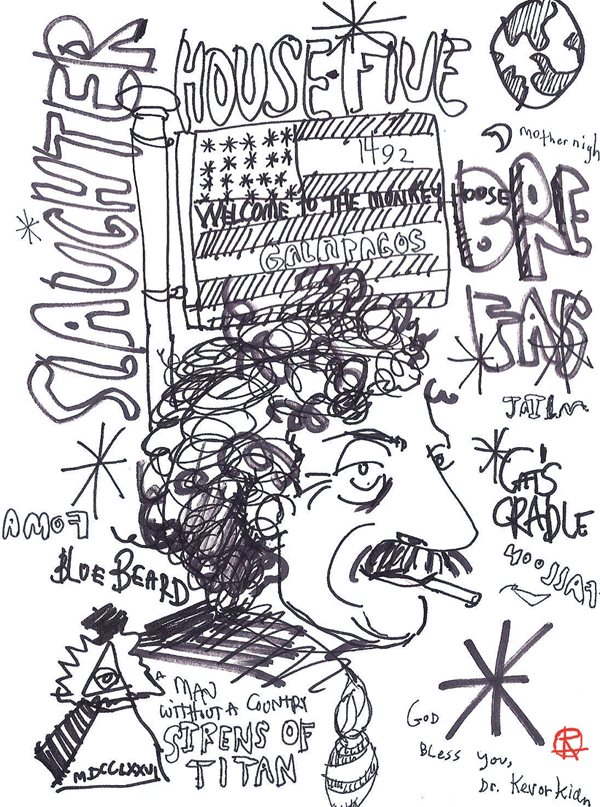 SLAUGHTER
HOUSE-FIVE
mother nigh
1492
WELCOME TO THE MONKEY HOUSE
GALAPAGOS
BRE
FAS
CAT'S
CRADLE
FOMA
BLUE BEARD
A MAN
WITHOUT A COUNTRY
SIRENS OF
TITAN
MDCCLXXVI
GOD
BLESS YOU,
Dr. Kevorkian